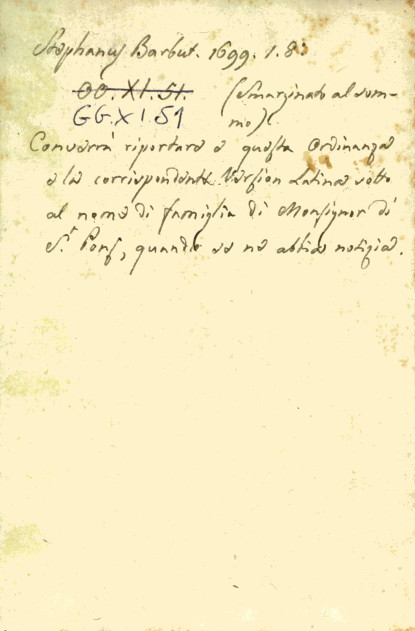 Stephanus Barbut. 1699. 1. 8:
OO. XI. 51. (Smarginato al som-
GG. X I. 51 mo).
Converrà riportare e questa Ordinanza
e la corrispondente Version Latina sotto
al nome di famiglia di Monsignor di
S.t Pons, quando se ne abbia notizia.